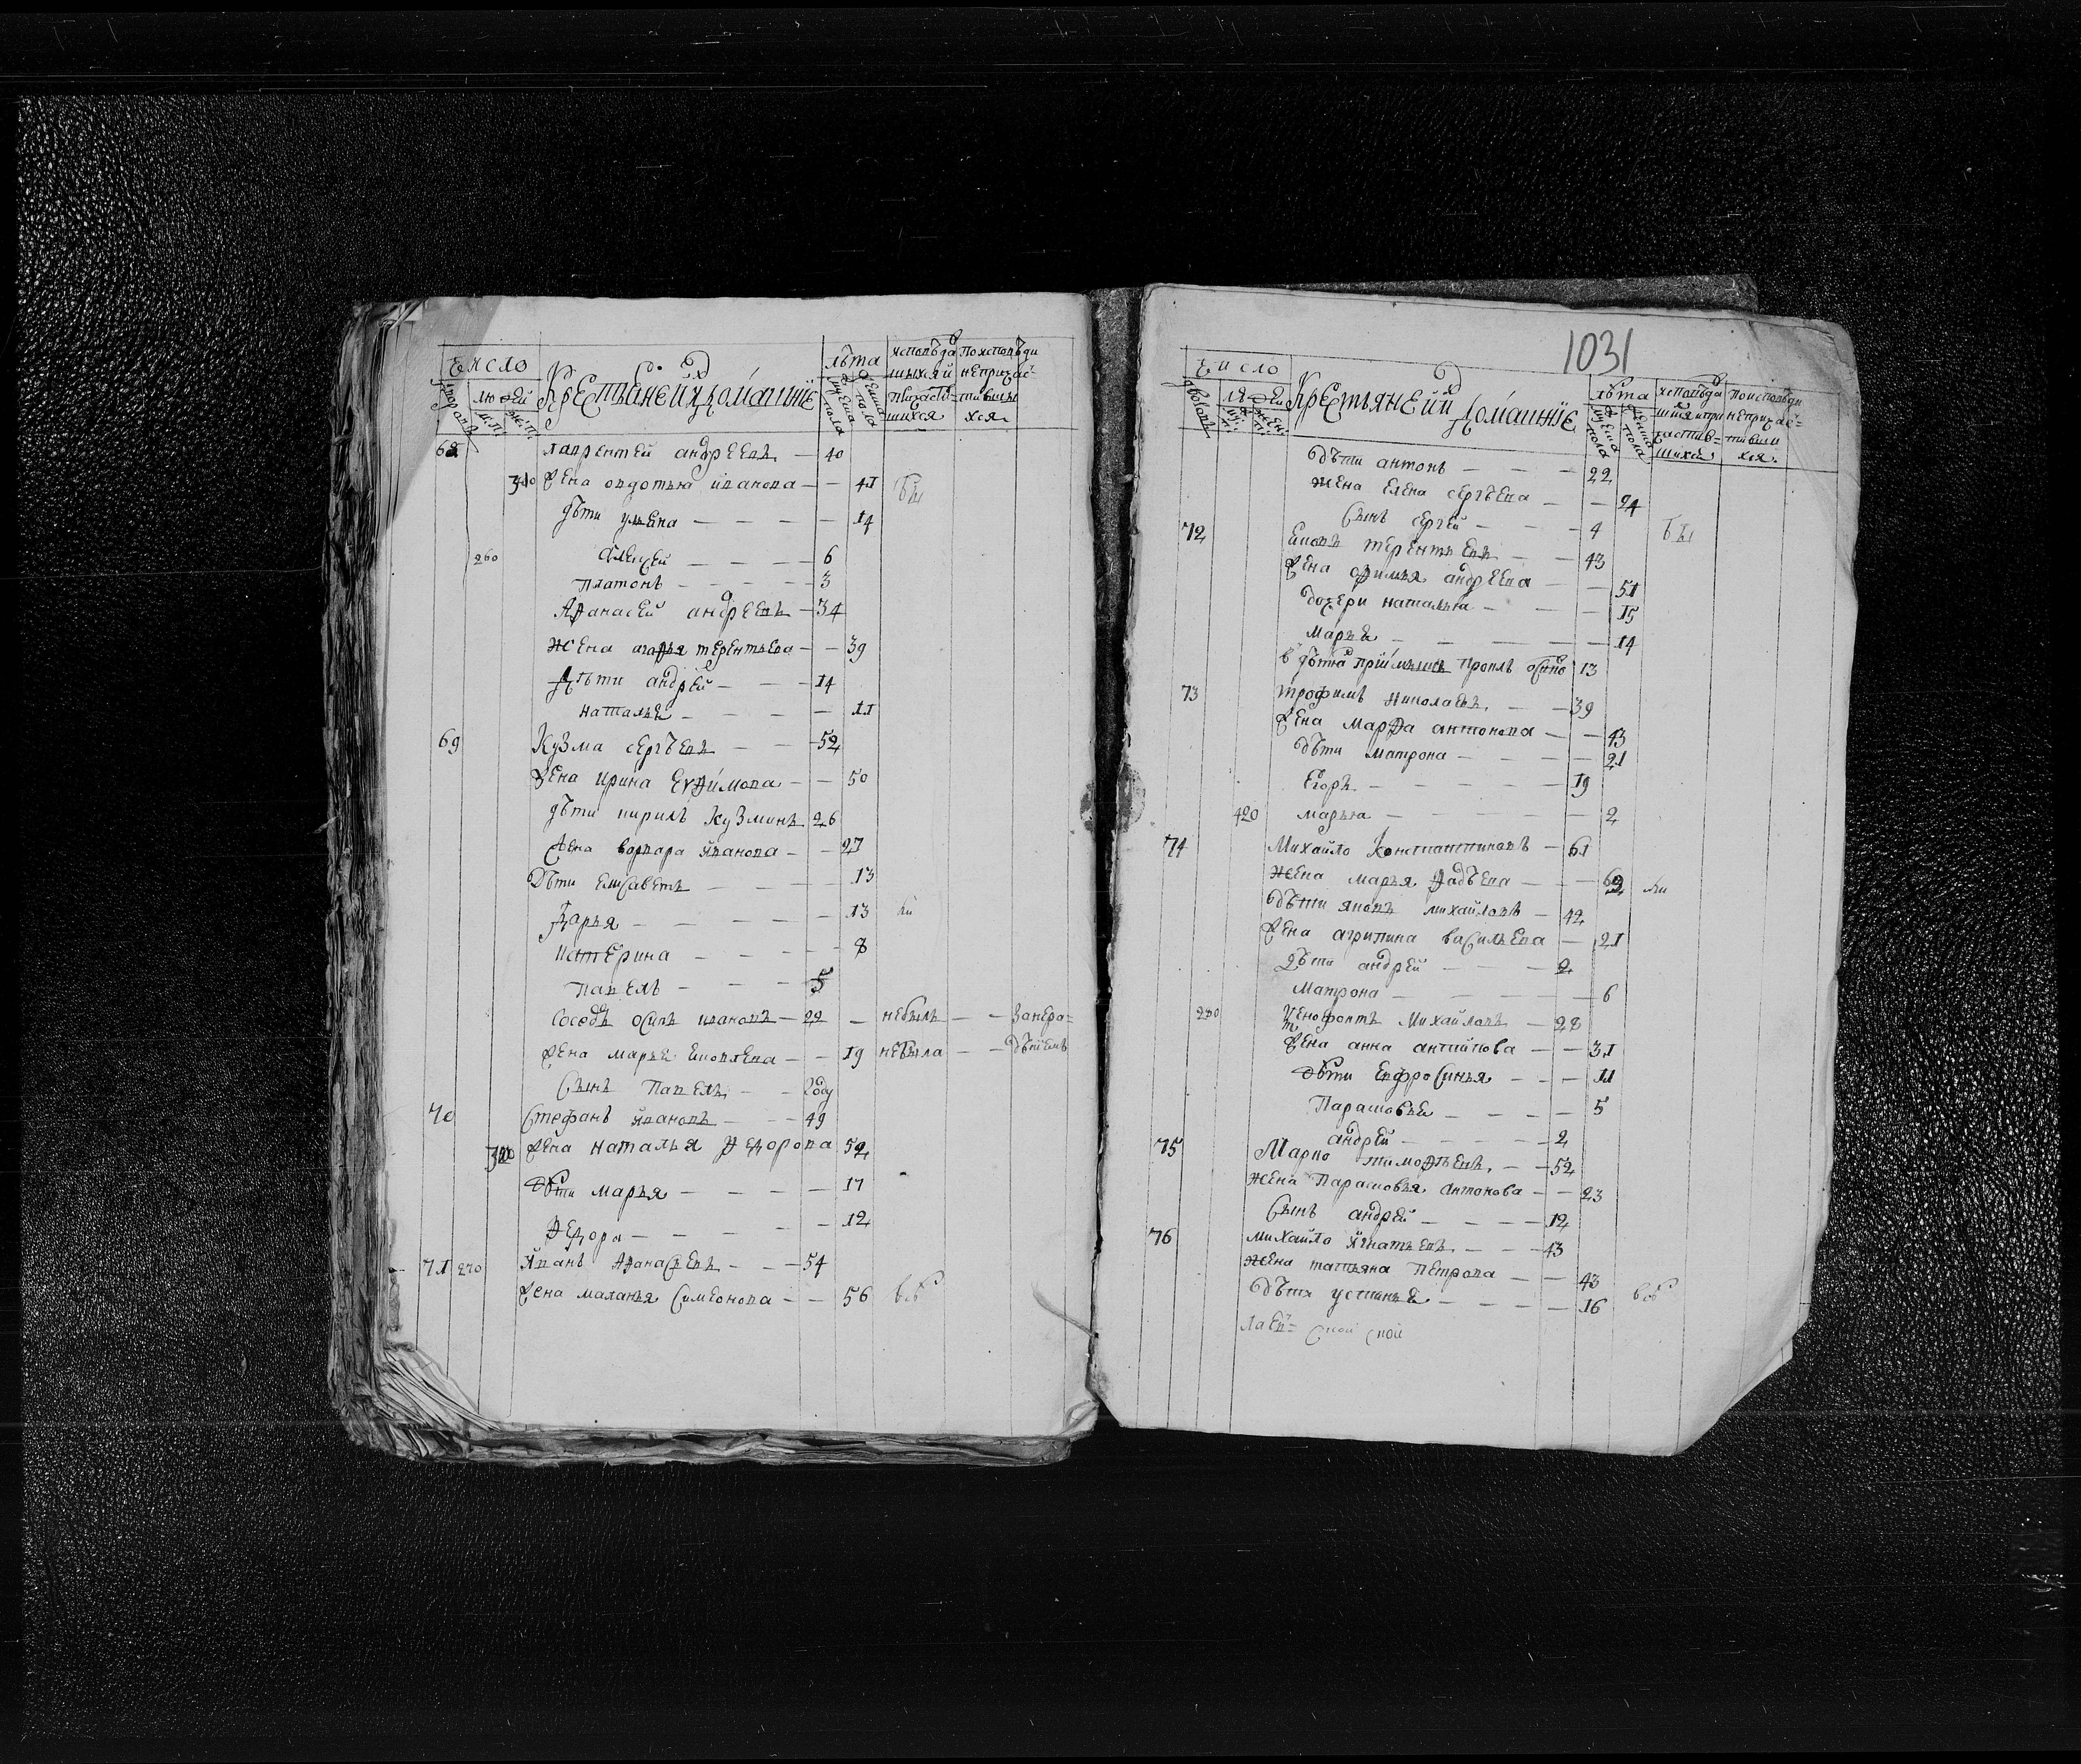 Число
Крестьане и их домашние
лѣта
исповѣда вшихся и причастившихся
по исповѣди непричастившихся
дворовъ
людей
м: п:
же: п:
мужеска пола
женска пола
68 лаврентей андреевъ — 40
310 жена овдотья иванова — — 41 бы
дѣти ульена — — — — 14
260 Алексей — — — — 6
платонъ — — — — 3
Афанасей андреевъ — 34
жена агафья терентьева — — 39
дѣти андрей — — — 14
наталья — — — — 11
69 Кузма сергѣевъ — — — 52
жена ирина Еѵфимова — — 50
дѣти кирилъ Кузминъ 26
жена варвара иванова — — 27
Дѣти Елисаветъ — — — — 13
дарья — — — — 13
катерина — — — — 8
павелъ — — — 5
Соседъ осипъ ивановъ — 22 — небылъ — — Занера=
жена марья яковлева — — 19 небыла — — дѣниемъ
Сынъ павелъ — — 2 году
70 Стефанъ ивановъ — — — 49
320 жена наталья федорова 52
дѣти марья — — — — 17
Федора — — — — 12
71 270 иванъ Афанасьевъ — — — 54
жена маланья Симеонова — — 56
1031
число
Крестьяне и и домашние
лѣта
исповѣда вшияся и причаствшихся
по исповѣди непричаствшихся
дворовъ
людей
мужеска пола
женска пола
дѣти антонъ — — — 22
жена Елена сергѣева — — 24
Сынъ сергей — — — 4 бы
72 яковъ терентьевъ — — 43
жена афимья андреева — — 51
дочери наталья — — — 15
марья — — — — 14
73 трофимъ николаевъ — — 39
жена марфа антонова — — 43
дѣти матрона — — — — 21
Егоръ — — — — — 19
420 марья — — — — — 2
74 Михайло Константиновъ — 61
жена марья Фадѣева — — — 62
дѣти яковъ михайловъ — 42
жена агрипина васильева — 21
Дѣти андрей — — — — 2
Матрона — — — — — 6
280 Ксенофонтъ Михайловъ — 28
жена анна антипова — — — 31
дѣти Евфросинья — — — 11
Парасковья — — — — 5
андрей — — — — — 2
75 Марко тимофѣевъ — — 52
жена Парасковья антонова — — 23
Сынъ андрей — — — — 12
76 михайло игнатьевъ — — — 43
жена татьяна петрова — — 43
дѣти устинья — — — — 16